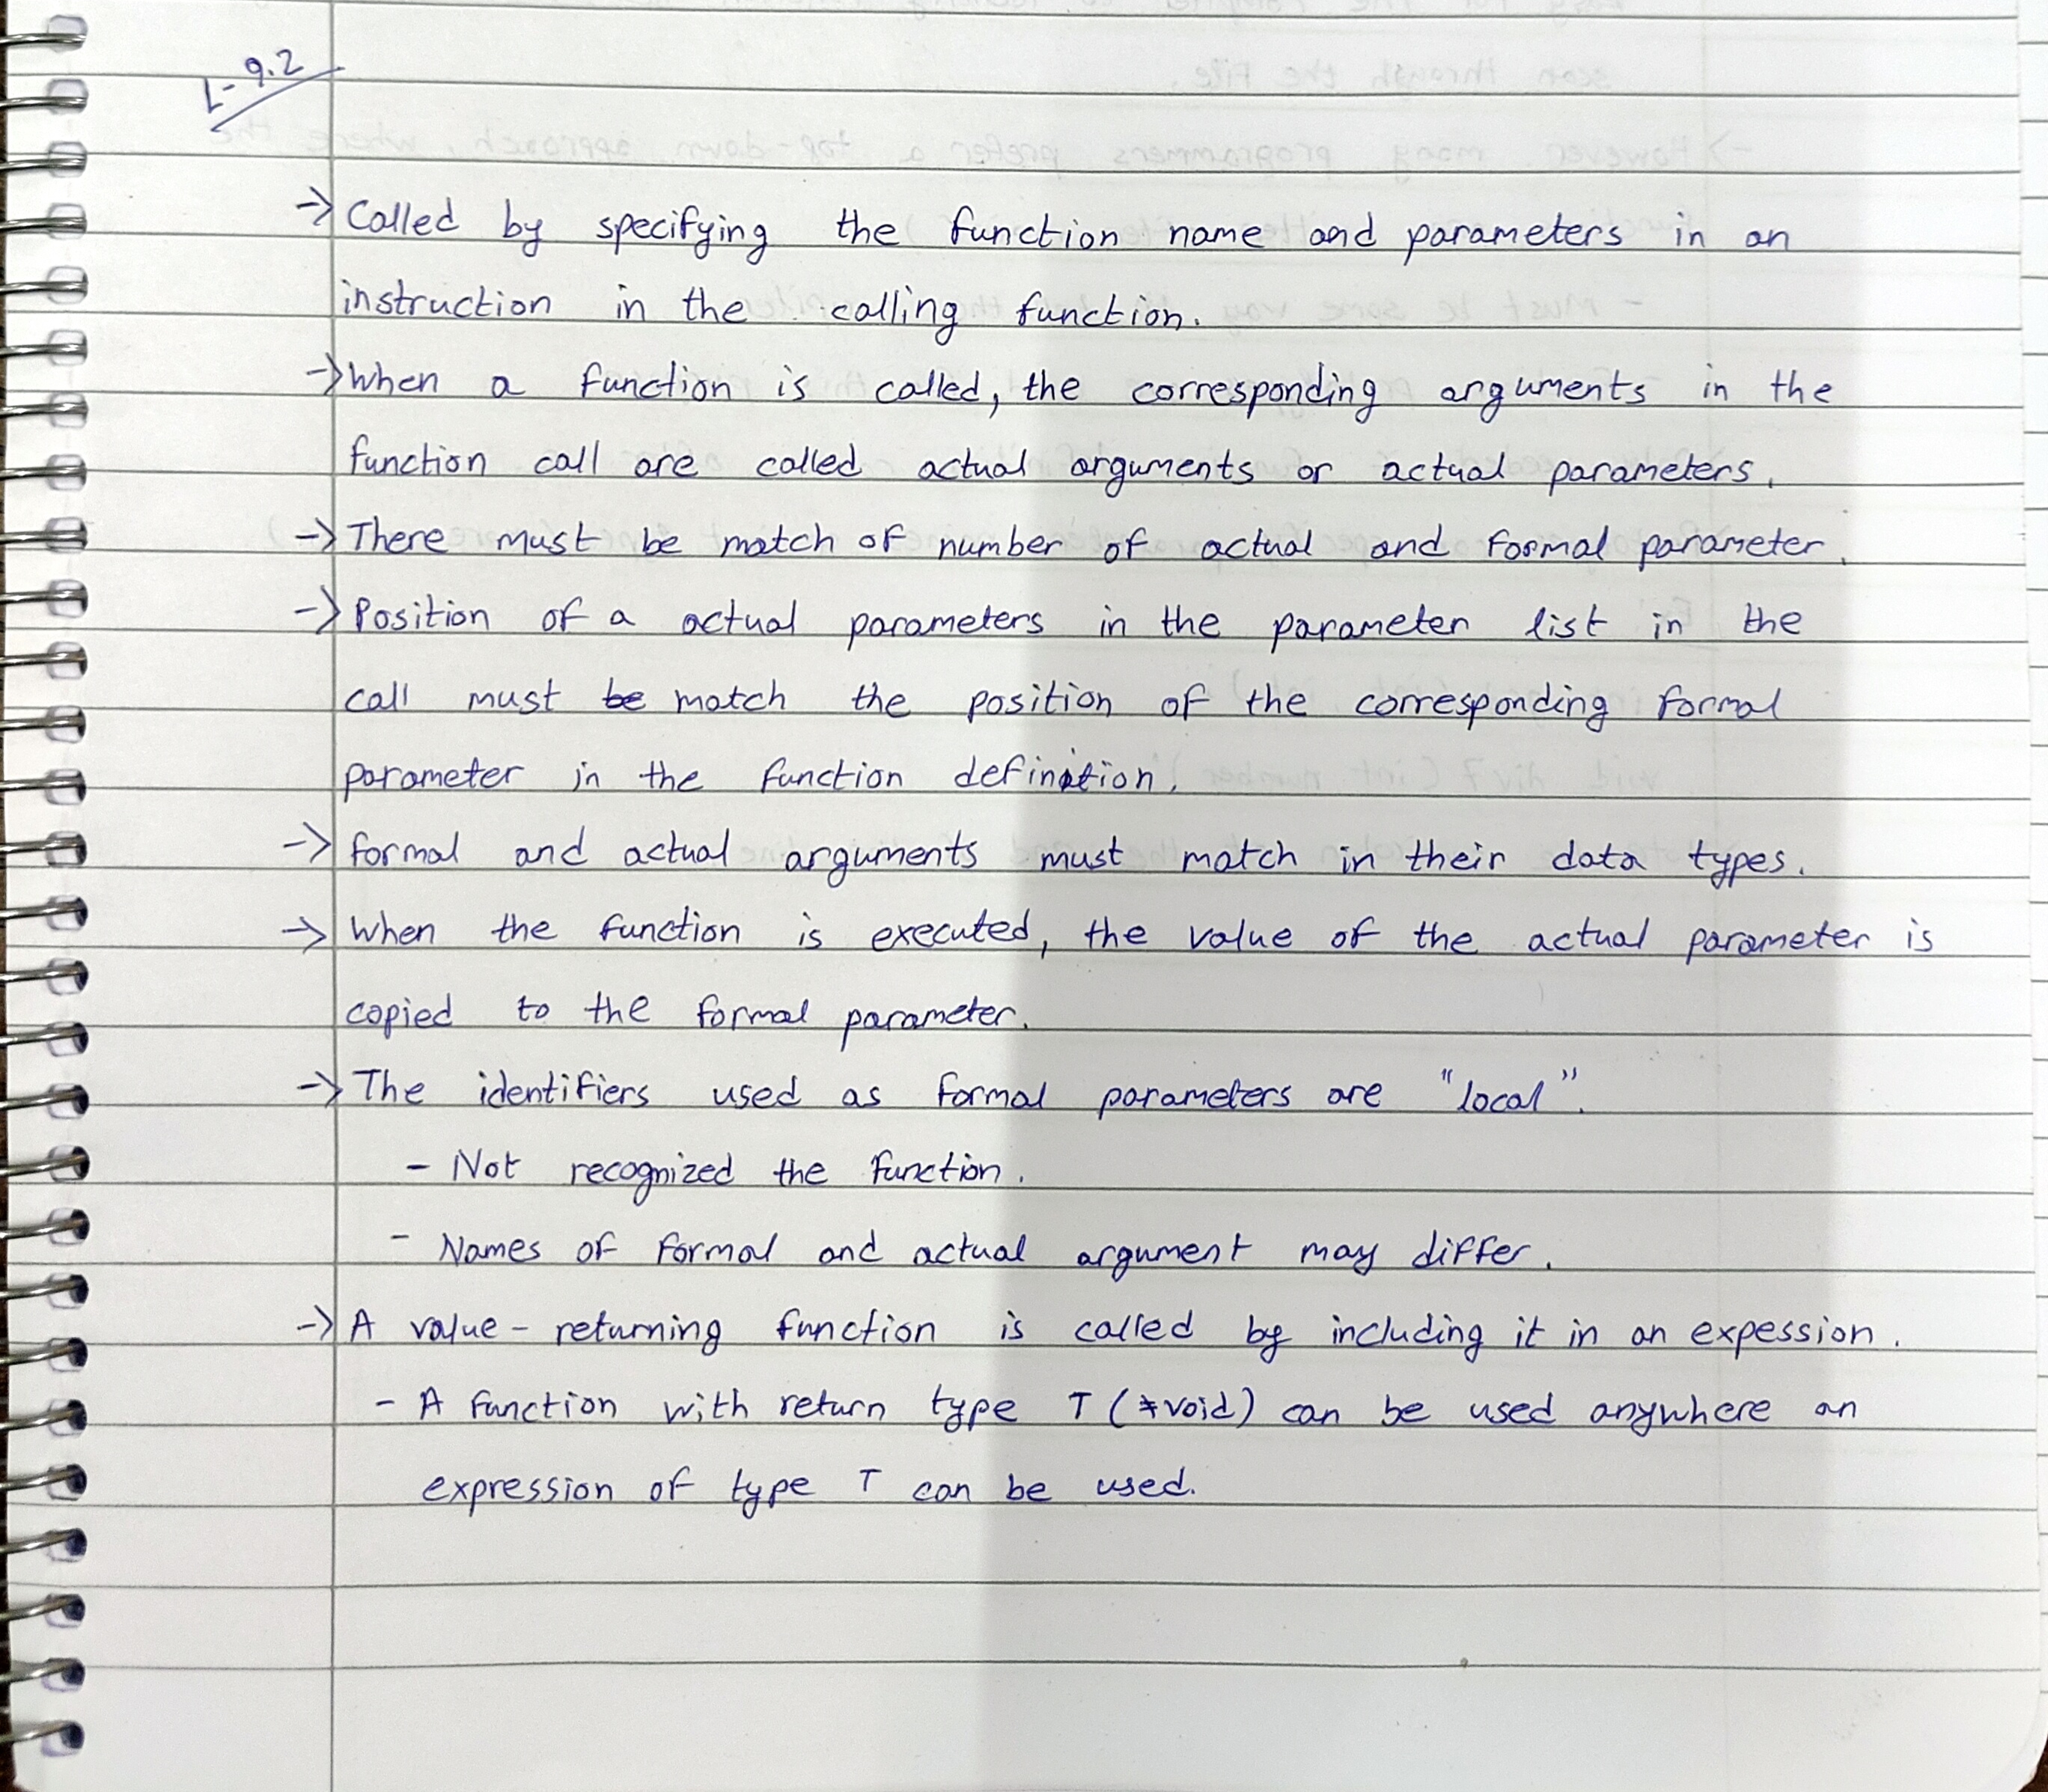 L-9.2
-> Called by specifying the function name and parameters in an
instruction in the calling function.
-> When a function is called, the corresponding arguments in the
function call are called actual arguments or actual parameters.
-> There must be match of number of actual and formal parameter.
-> Position of a actual parameters in the parameter list in the
call must be match the position of the corresponding formal
parameter in the function definition.
-> formal and actual arguments must match in their data types.
-> When the function is executed, the value of the actual parameter is
copied to the formal parameter.
-> The identifiers used as formal parameters are "local".
- Not recognized the function.
- Names of formal and actual argument may differ.
-> A value-returning function is called by including it in an expession.
- A function with return type T (≠void) can be used anywhere an
expression of type T can be used.